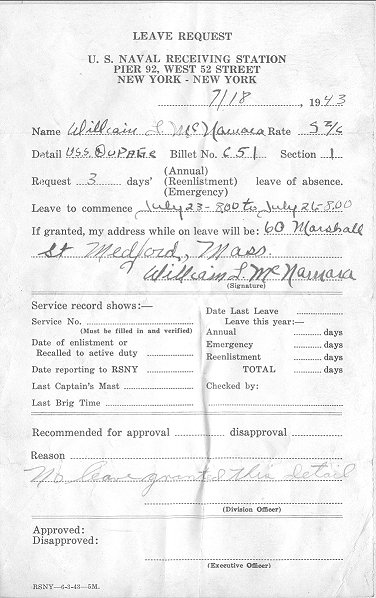 LEAVE REQUEST
U. S. NAVAL RECEIVING STATION
PIER 92, WEST 52 STREET
NEW YORK - NEW YORK
7/18, 1943
Name William L McNamara Rate S2/c
Detail USS DUPAGE Billet No. C51 Section 1
(Annual)
Request 3 days' (Reenlistment) leave of absence.
(Emergency)
Leave to commence July 23-800 to July 26-800
If granted, my address while on leave will be: 60 Marshall
St Medford, Mass.
William L. McNamara
(Signature)
Service record shows:—
Service No.
(Must be filled in and verified)
Date of enlistment or
Recalled to active duty
Date reporting to RSNY
Last Captain's Mast
Last Brig Time
Date Last Leave
Leave this year:—
Annual days
Emergency days
Reenlistment days
TOTAL days
Checked by:
Recommended for approval disapproval
Reason
No leave granted this detail
(Division Officer)
Approved:
Disapproved:
(Executive Officer)
RSNY—6-3-43—5M.